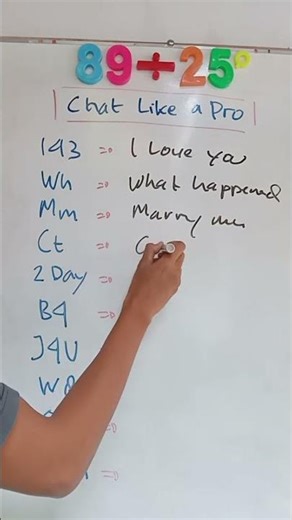 89+25°
Chat Like a Pro
143 => I Love you
Wh => What happened
Mm => Marry me
Ct =>
2 Day =>
B4 =>
J4U